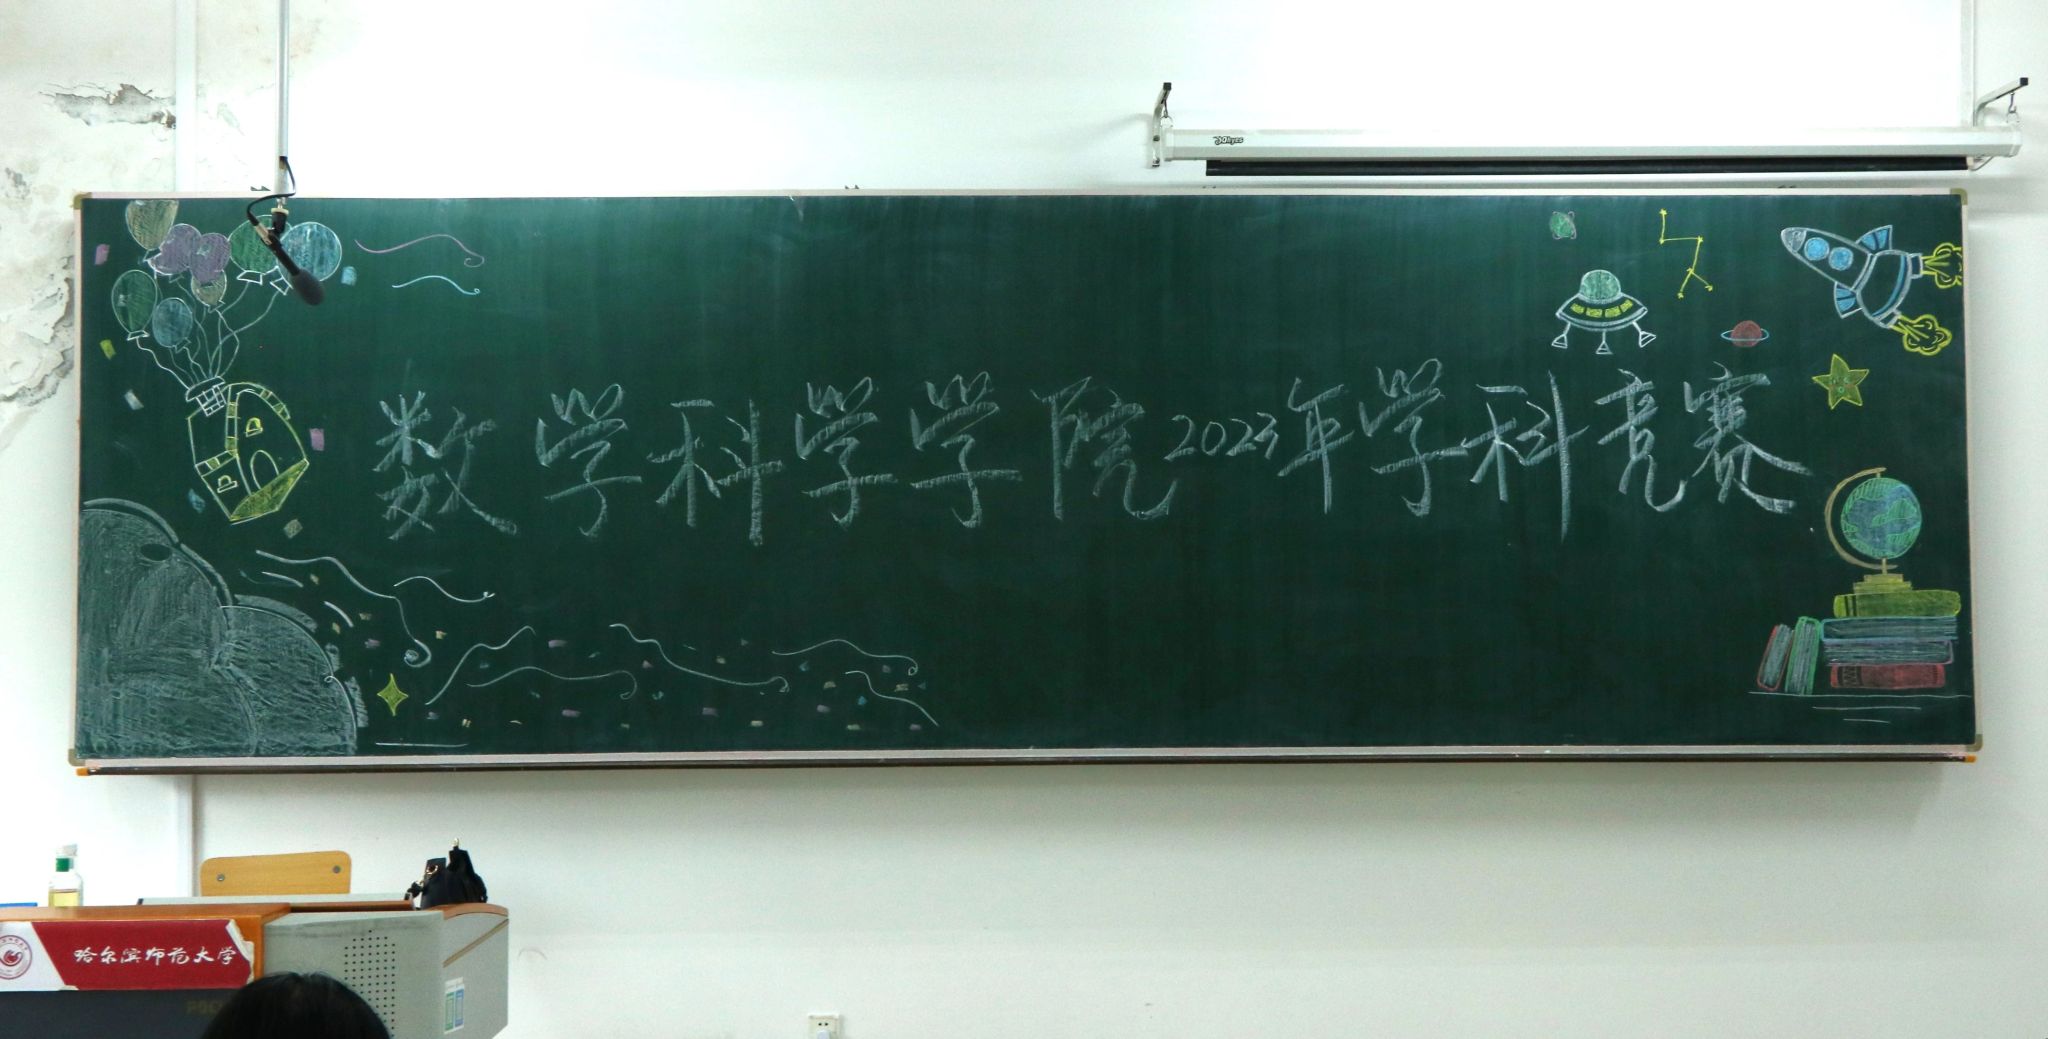 数学科学学院2023年学科竞赛
哈尔滨师范大学